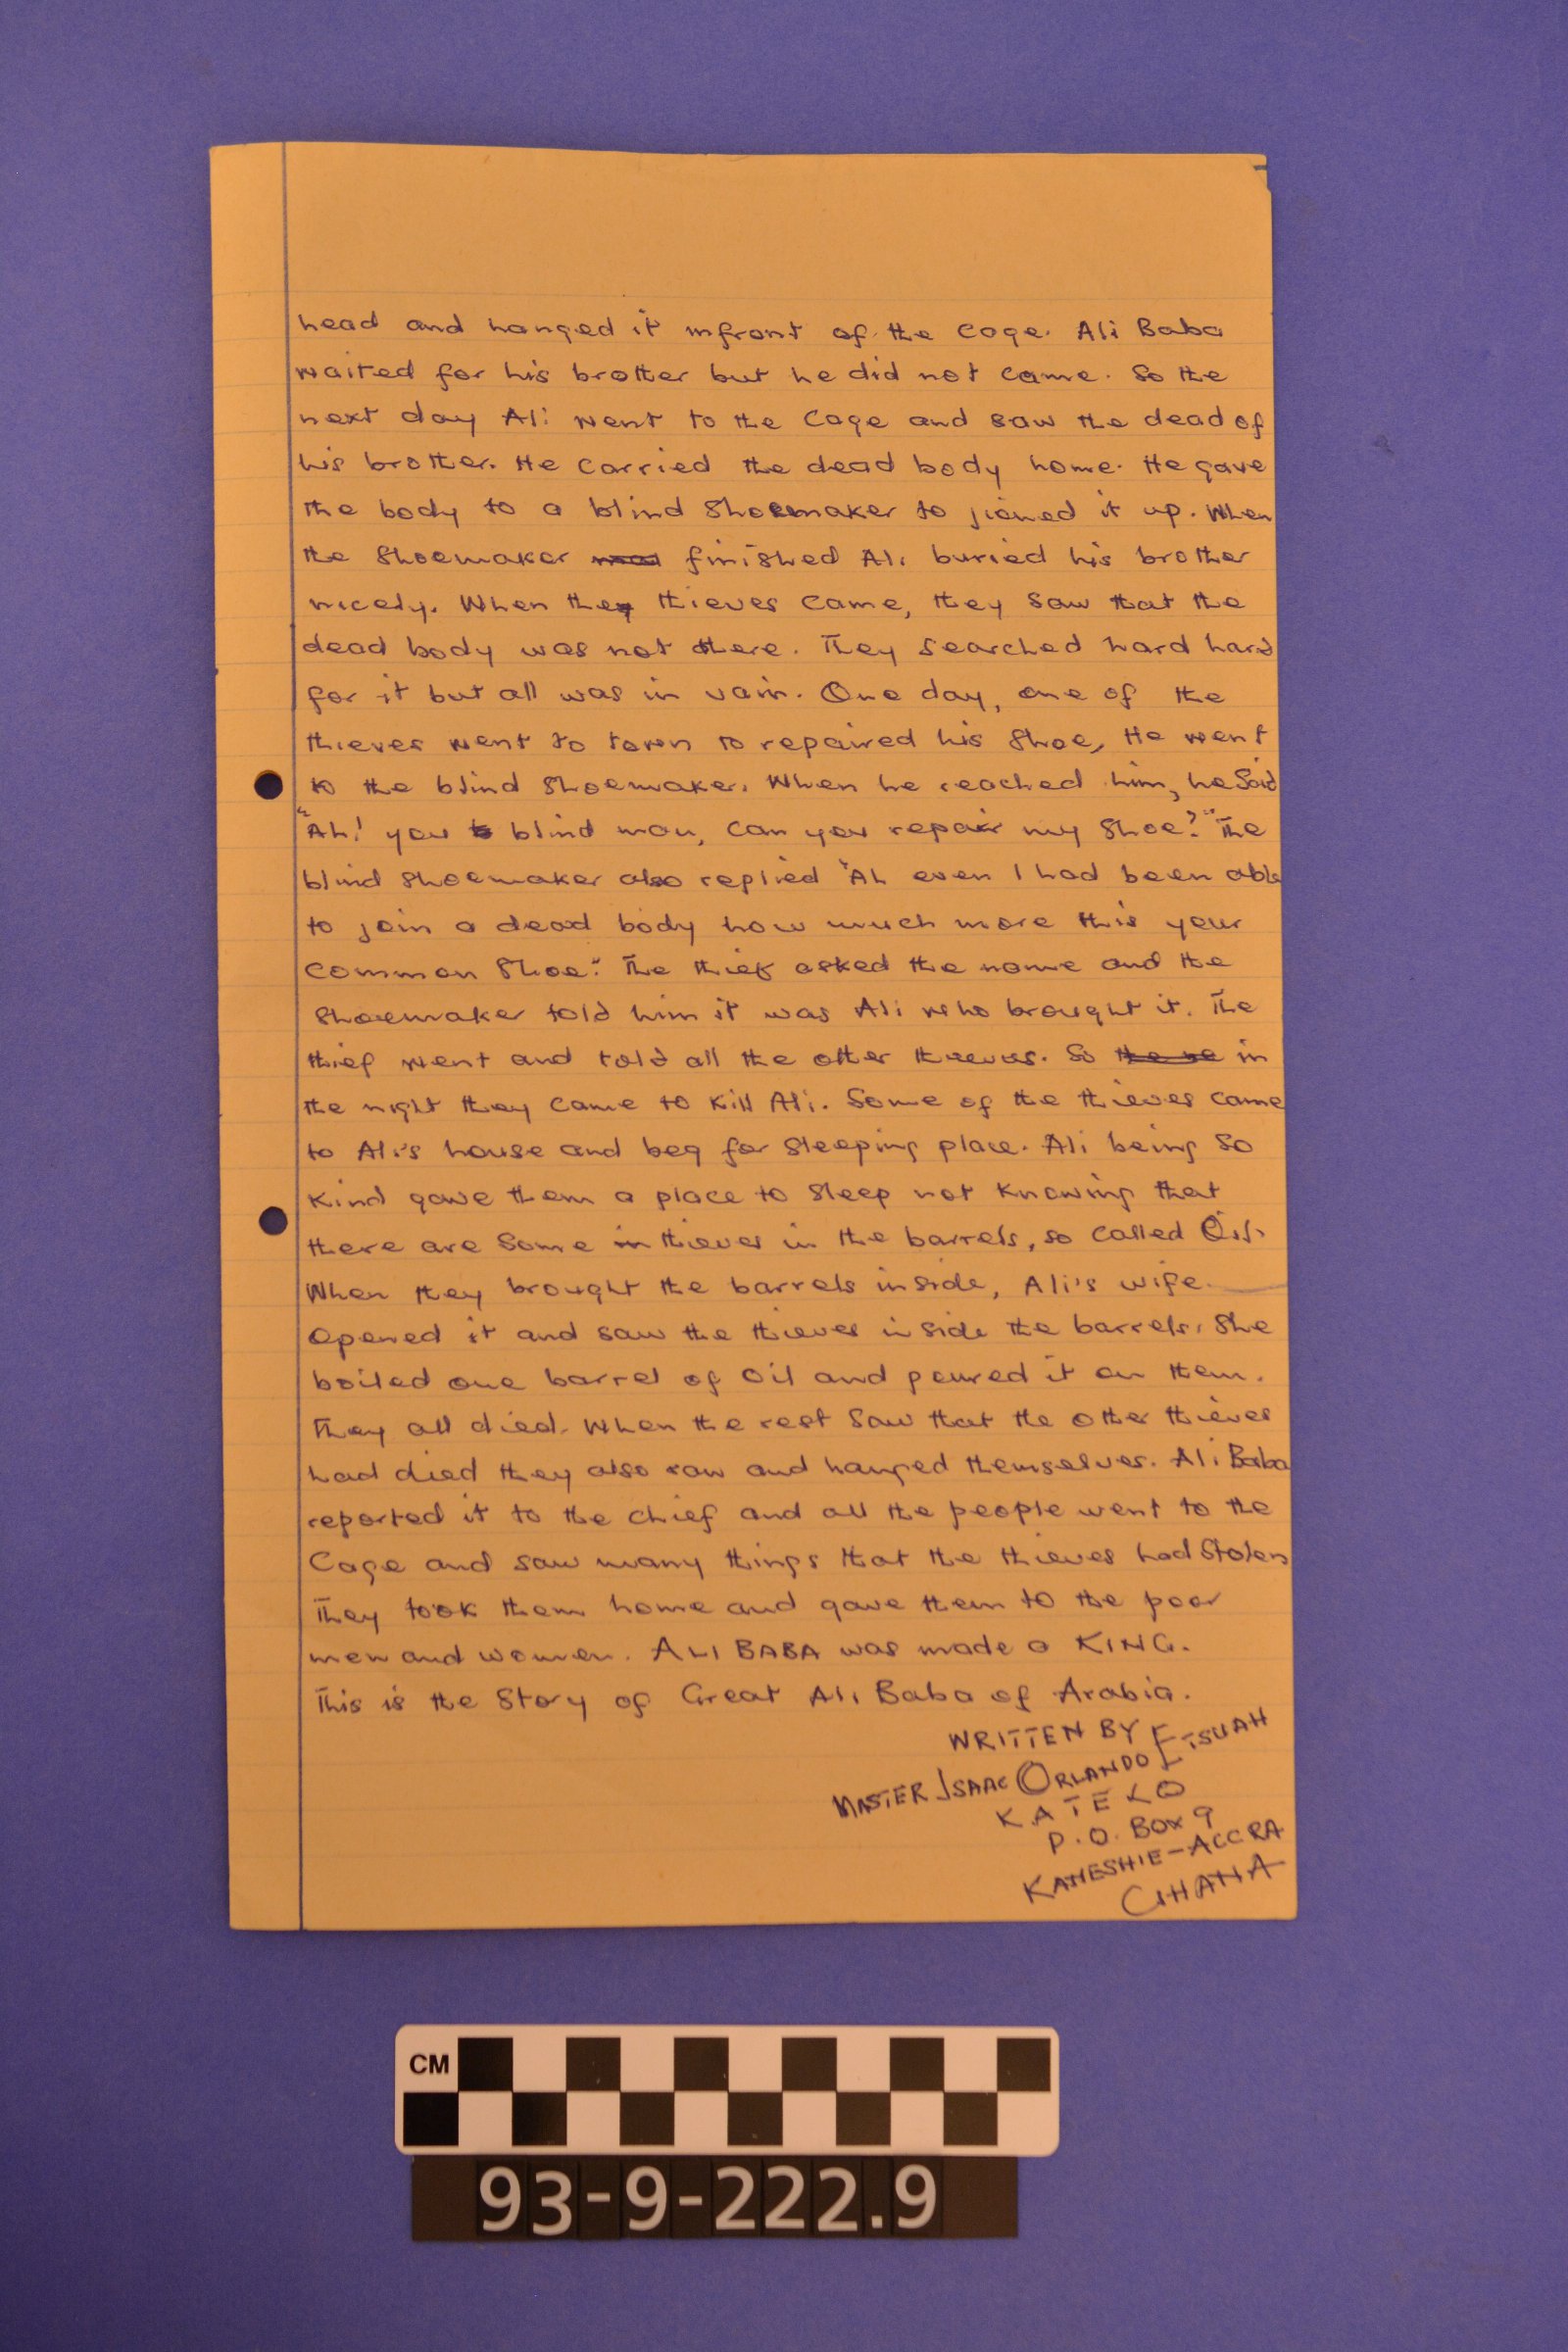 head and hanged it infront of the Cage. Ali Baba
waited for his brother but he did not came. So the
next day Ali went to the Cage and saw the dead of
his brother. He carried the dead body home. He gave
the body to a blind Shoemaker to joined it up. When
the Shoemaker finished Ali buried his brother
nicely. When they thieves came, they saw that the
dead body was not there. They searched hard hard
for it but all was in vain. One day, one of the
thieves went to town to repaired his Shoe, He went
to the blind Shoemaker. When he reached him, he Said
"Ah! you blind man, can you repair my Shoe?" The
blind Shoemaker also replied "Ah even I had been able
to join a dead body how much more this your
common Shoe". The thief asked the name and the
Shoemaker told him it was Ali who brought it. The
thief went and told all the other thieves. So the we in
the night they came to kill Ali. Some of the thieves came
to Ali's house and beg for Sleeping place. Ali being So
kind gave them a place to Sleep not knowing that
there are Some in thieves in the barrels, so called Oil.
When they brought the barrels inside, Ali's wife
Opened it and saw the thieves inside the barrels. She
boiled one barrel of Oil and poured it on them.
They all died. When the rest Saw that the other thieves
had died they also ran and hanged themselves. Ali Baba
reported it to the chief and all the people went to the
Cage and saw many things that the thieves had Stolen
They took them home and gave them to the poor
men and women. ALI BABA was made a KING.
This is the Story of Great Ali Baba of Arabia.
WRITTEN BY
MASTER ISAAC ORLANDO ETSUAH
KATEKO
P.O. BOX 9
KANESHIE-ACCRA
GHANA
CM
93-9-222.9